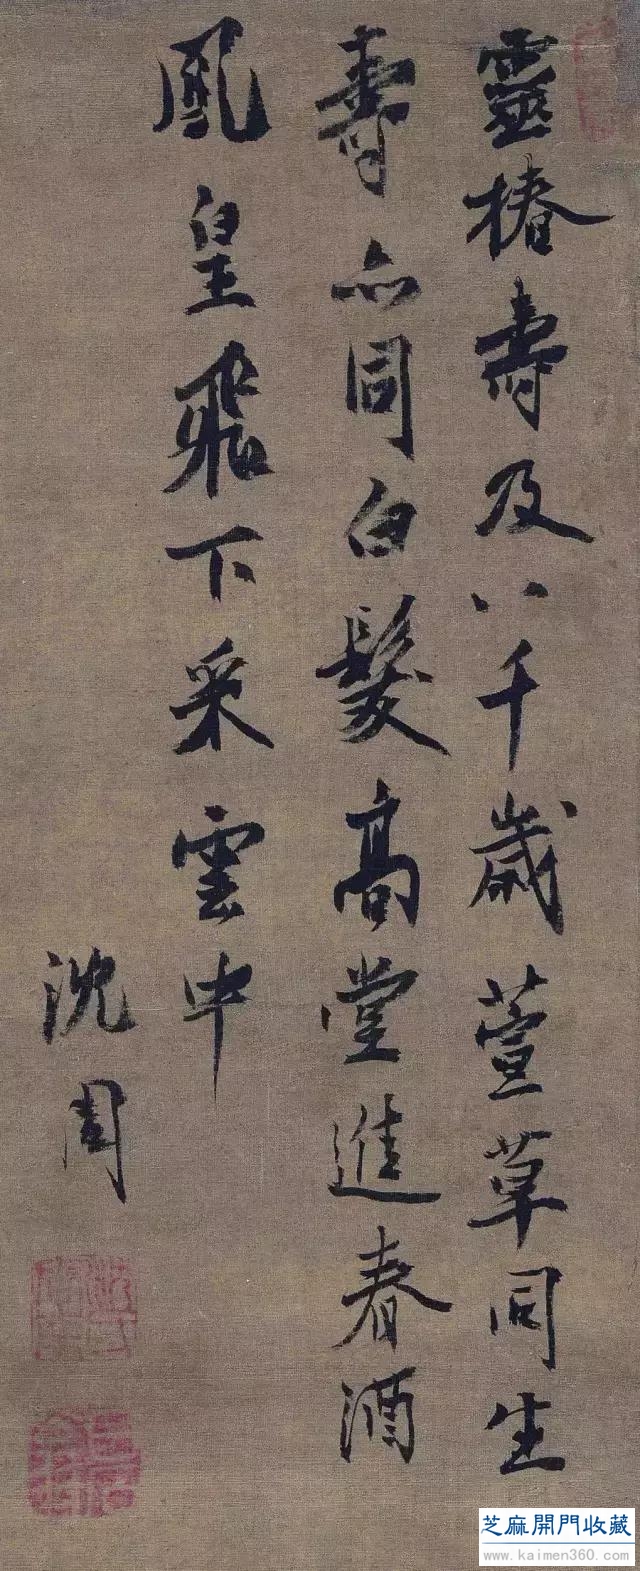 靈椿壽及八千歲萱草同生
壽亦同白髮高堂進春酒
鳳皇飛下采雲中
沈周
芝麻開門收藏
www.kaimen360.com